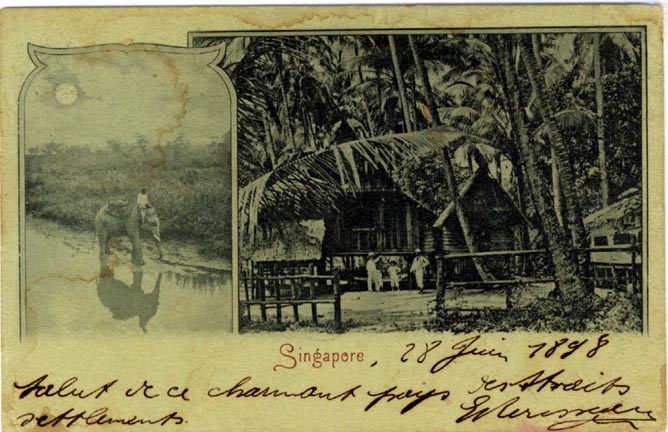 Singapore, 28 Juin 1898
Salut de ce charmant pays des Straits
settlements.